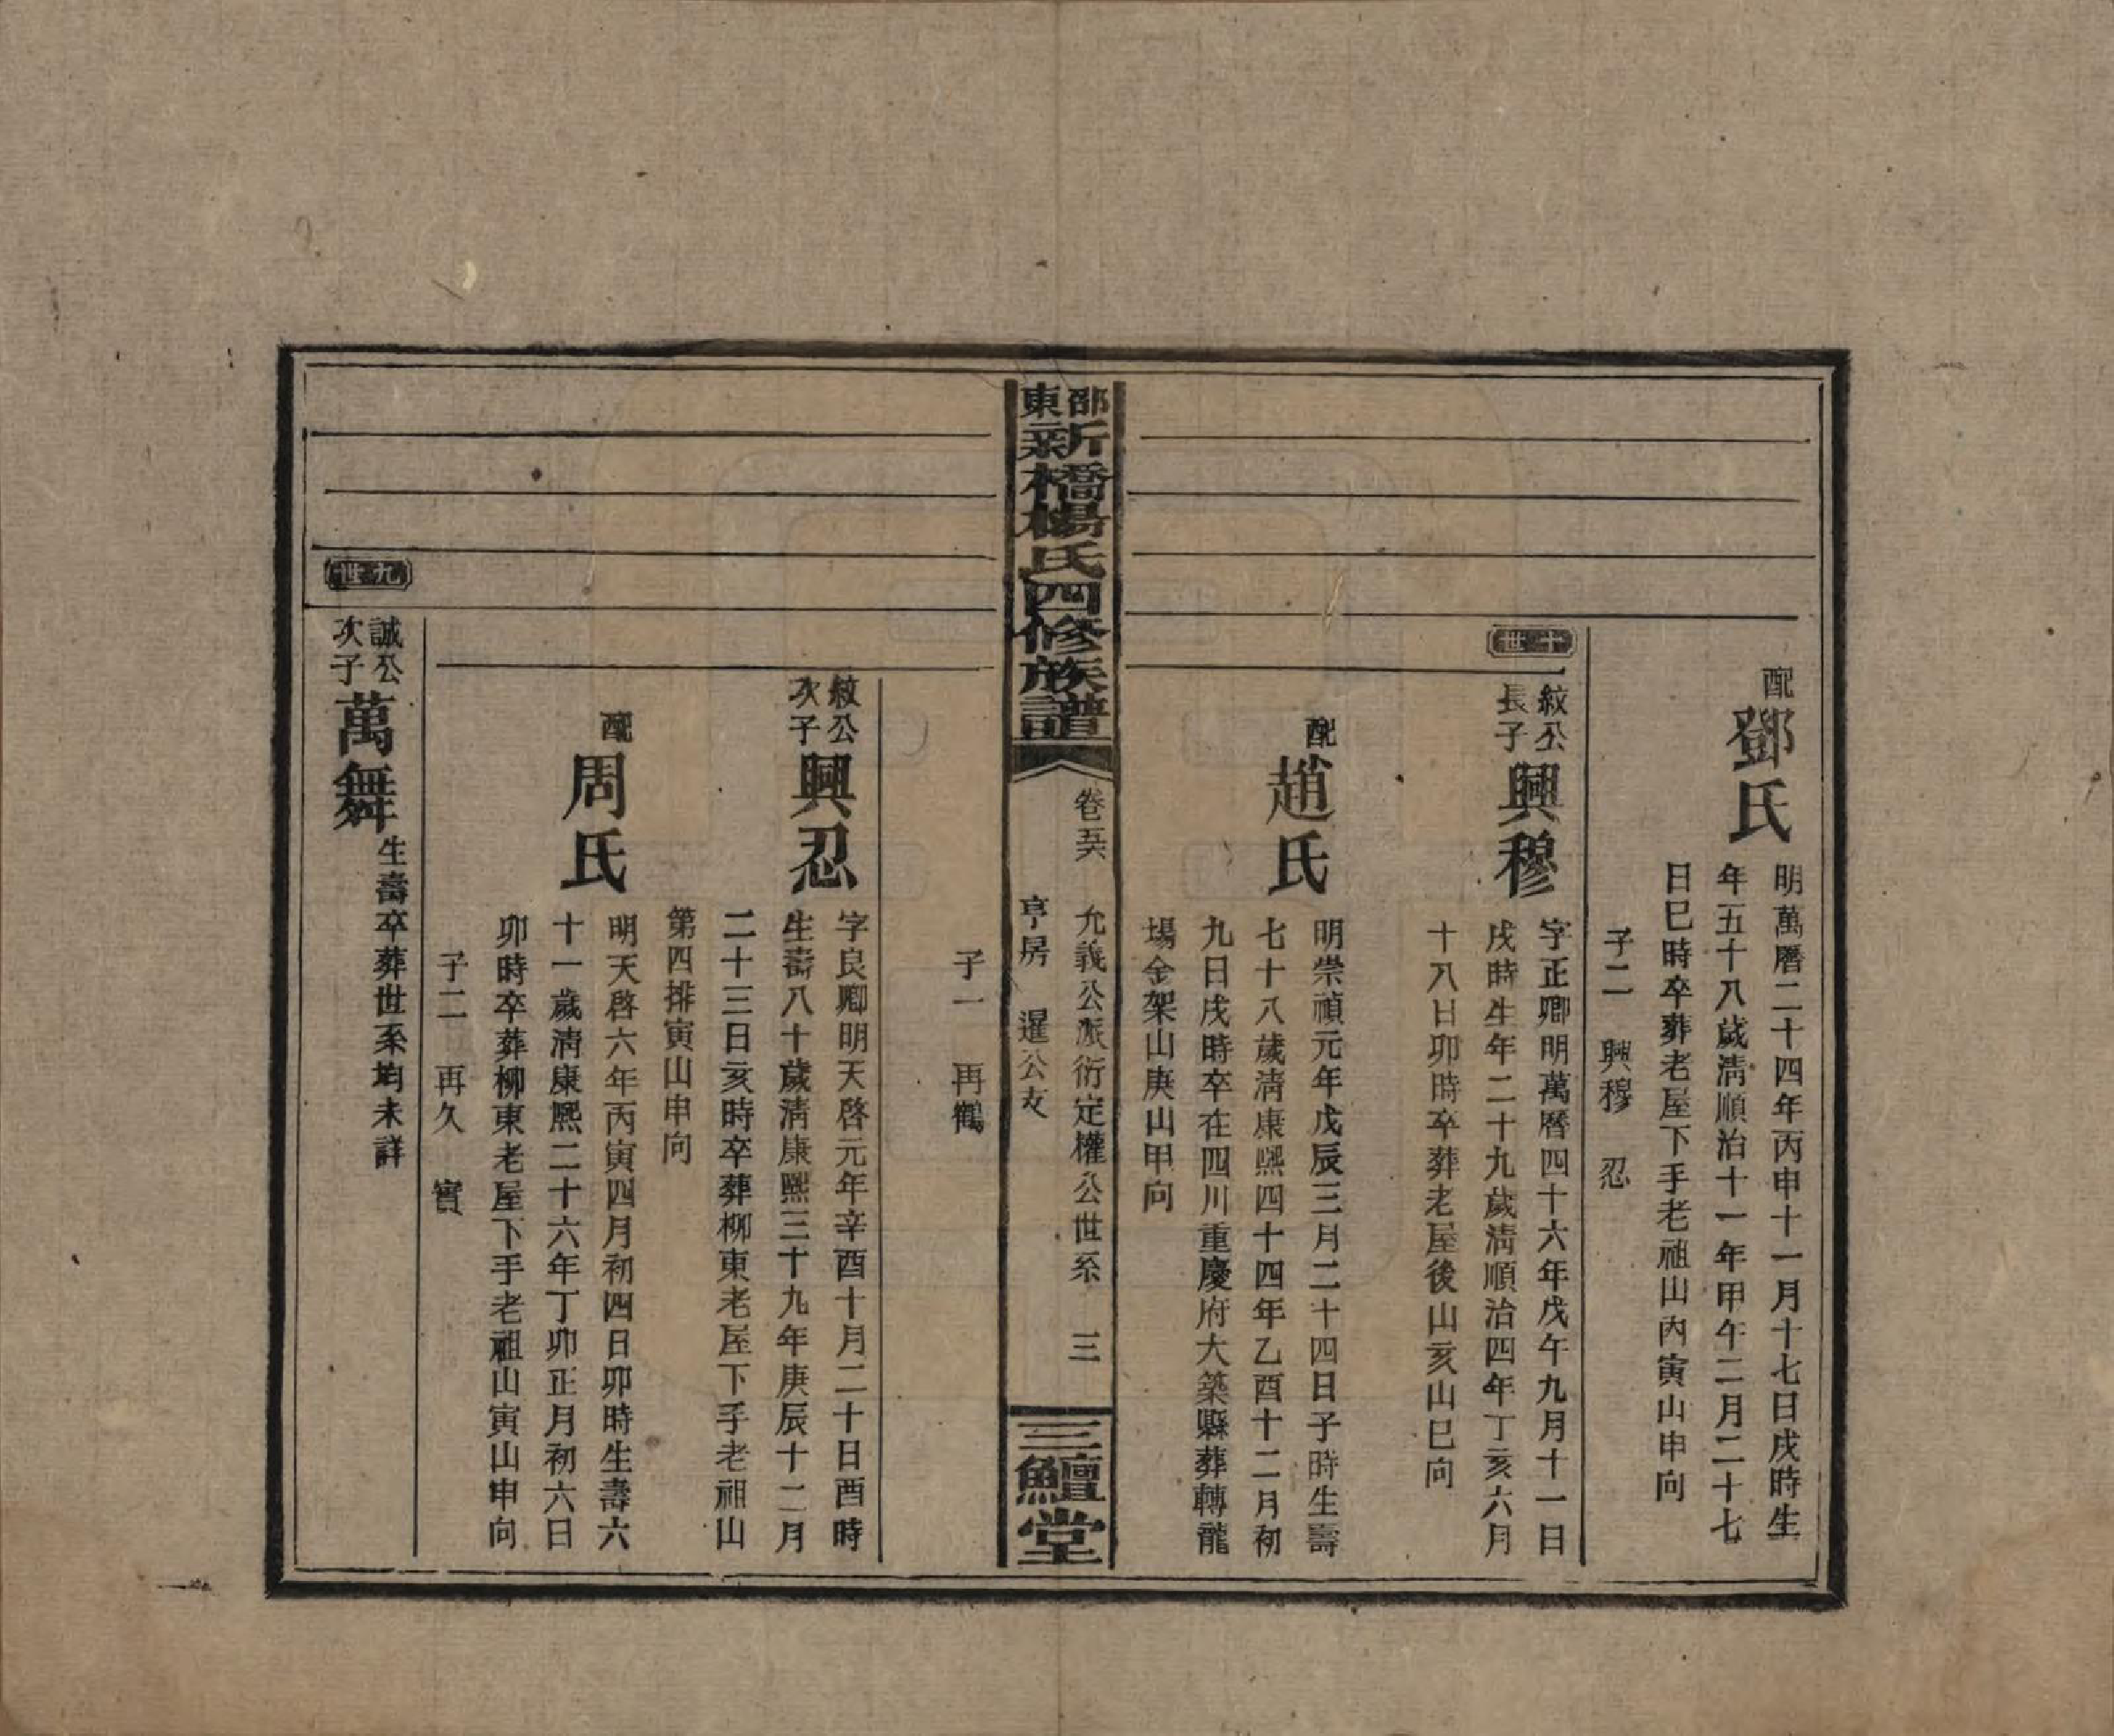 配
鄧氏
明萬曆二十四年丙申十一月十七日戌時生
年五十八歲淸順治十一年甲午二月二十七
日巳時卒葬老屋下手老祖山內寅山申向
子二　興穆　忍
十世
紋公
長子
興穆
字正卿明萬曆四十六年戊午九月十一日
戌時生年二十九歲淸順治四年丁亥六月
十八日卯時卒葬老屋後山亥山巳向
配
趙氏
明崇禎元年戊辰三月二十四日子時生壽
七十八歲淸康熙四十四年乙酉十二月初
九日戌時卒在四川重慶府大築縣葬轉龍
場金架山庚山甲向
邵東
新橋楊氏四修族譜
卷五六　允義公派衍定權公世系　三
亨房　暹公支
三鱣堂
子一　再鶴
紋公
次子
興忍
字良卿明天啓元年辛酉十月二十日酉時
生壽八十歲淸康熙三十九年庚辰十二月
二十三日亥時卒葬柳東老屋下手老祖山
第四排寅山申向
配
周氏
明天啓六年丙寅四月初四日卯時生壽六
十一歲淸康熙二十六年丁卯正月初六日
卯時卒葬柳東老屋下手老祖山寅山申向
子二　再久　實
九世
誠公
次子
萬舞
生壽卒葬世系均未詳